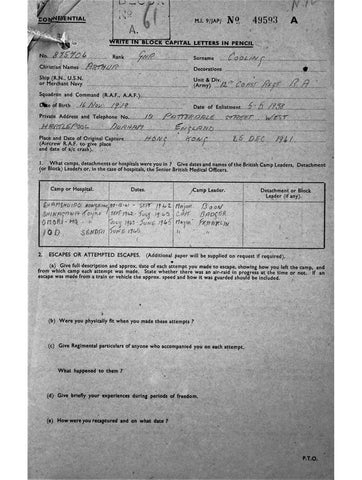 CONFIDENTIAL
A 61
M.I. 9/JAP) No 49593 A
WRITE IN BLOCK CAPITAL LETTERS IN PENCIL
No. 875706 Rank GNR Surname CODLING
Christian Names ARTHUR Decorations
Ship (R.N., U.S.N. or Merchant Navy) Unit & Div. (Army) 12th COAST REGT R.A
Squadron and Command (R.A.F., A.A.F.)
Date of Birth 16 NOV 1919 Date of Enlistment 5-5 1938
Private Address and Telephone No. 19 PATTERDALE STREET WEST
HARTLEPOOL DURHAM ENGLAND
Place and Date of Original Capture HONG KONG 25 DEC 1941
(Aircrew R.A.F. to give place
and date of a/c crash).
1. What camps, detachments or hospitals were you in ? Give dates and names of the British Camp Leaders, Detachment
(or Block) Leaders or, in the case of hospitals, the Senior British Medical Officers.
Camp or Hospital. Dates. Camp Leader. Detachment or Block Leader (if any).
SHAMSHUIPO SEPT 1942 Major BOON
SHINAGAWA TOKYO SEPT 1942 - July 1943 CAPT BADGER
July 1943 - JUNE 1945 Major FRANKLIN
SENDAI JUNE 1945 "
2. ESCAPES OR ATTEMPTED ESCAPES. (Additional paper will be supplied on request if required).
(a) Give full description and approx. date of each attempt you made to escape, showing how you left the camp, and
from which camp each attempt was made. State whether there was an air-raid in progress at the time or not. If an
escape was made from a train or vehicle the approx. speed and how it was guarded should be included.
(b) Were you physically fit when you made these attempts ?
(c) Give Regimental particulars of anyone who accompanied you on each attempt.
What happened to them ?
(d) Give briefly your experiences during periods of freedom.
(e) How were you recaptured and on what date ?
P.T.O.